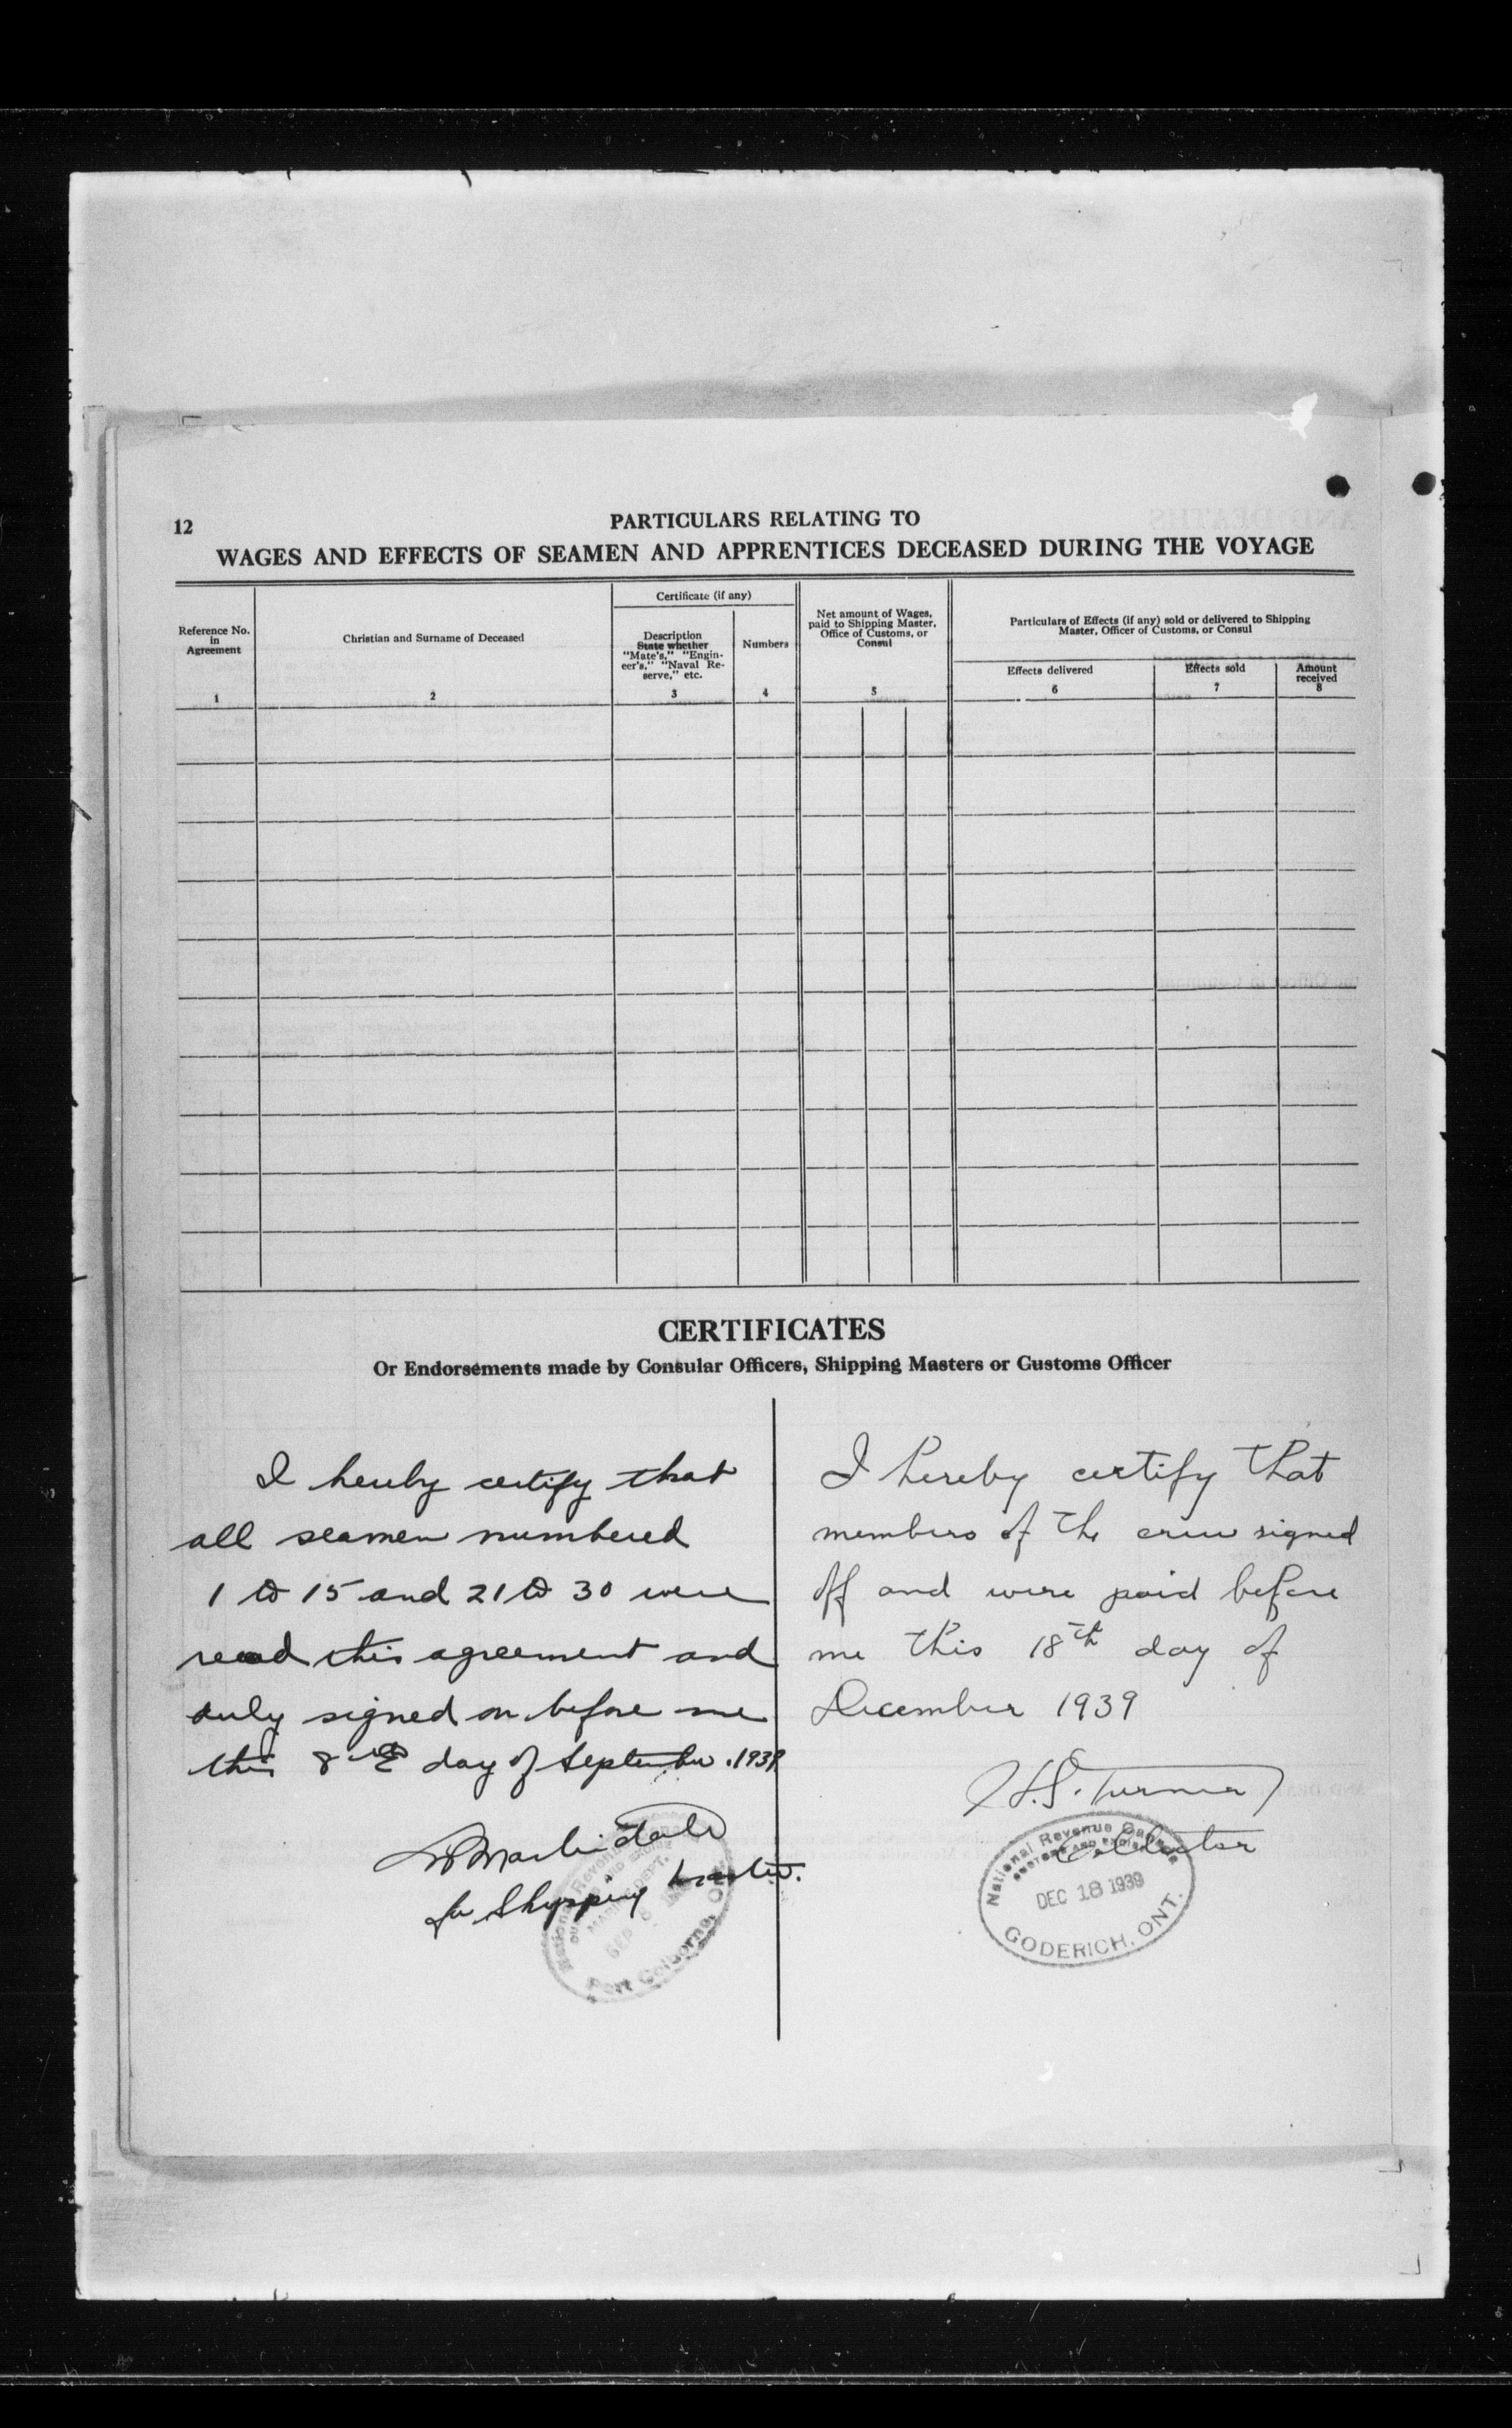 12
PARTICULARS RELATING TO
WAGES AND EFFECTS OF SEAMEN AND APPRENTICES DECEASED DURING THE VOYAGE
Reference No.
in
Agreement
1
Christian and Surname of Deceased
2
Certificate (if any)
Description
State whether
"Mate's," "Engin-
eer's," "Naval Re-
serve," etc.
3
Numbers
4
Net amount of Wages,
paid to Shipping Master,
Office of Customs, or
Consul
5
Particulars of Effects (if any) sold or delivered to Shipping
Master, Officer of Customs, or Consul
Effects delivered
6
Effects sold
7
Amount
received
8
CERTIFICATES
Or Endorsements made by Consular Officers, Shipping Masters or Customs Officer
I hereby certify that
all seamen numbered
1 to 15 and 21 to 30 were
read this agreement and
duly signed on before me
this 8th day of September. 1939
for Shipping Master.
National Revenue
MARINE DEPT.
SEP 8
Port Colborne, Ont.
I hereby certify that
members of the crew signed
off and were paid before
me this 18th day of
December 1939
H.S. Turner
Collector
National Revenue Canada
CUSTOMS AND EXCISE
DEC 18 1939
GODERICH, ONT.